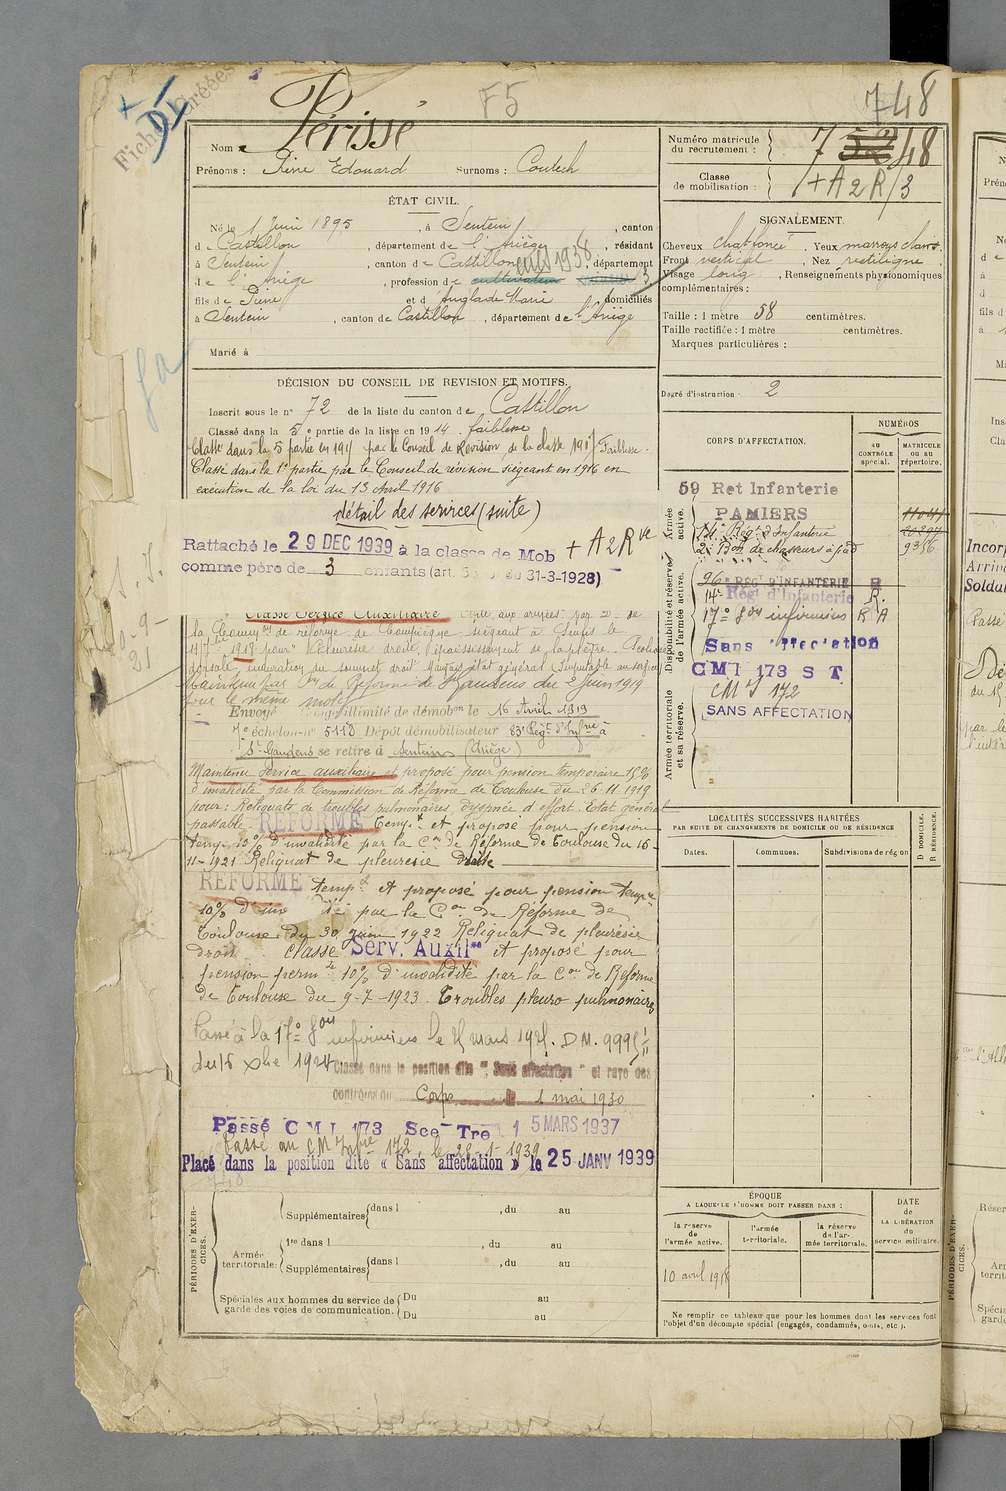 Fiches créées
F5
748
Nom : Périssé
Prénoms : Pierre Edouard Surnoms : Coutech
Numéro matricule du recrutement : 748
Classe de mobilisation : + A 2 R / 3
ÉTAT CIVIL.
Né le 1 Juin 1895, à Sentein, canton
de Castillon, département de l'Ariège, résidant
à Sentein, canton de Castillon, département
de l'Ariège, profession de cultivateur
fils de Pierre et d'Anglade Marie domiciliés
à Sentein, canton de Castillon, département de l'Ariège
Marié à
SIGNALEMENT.
Cheveux chat. foncé. Yeux marrons clairs.
Front vertical. Nez rectiligne
Visage long. Renseignements physionomiques
complémentaires :
Taille : 1 mètre 58 centimètres.
Taille rectifiée : 1 mètre centimètres.
Marques particulières :
Degré d'instruction : 2
DÉCISION DU CONSEIL DE REVISION ET MOTIFS.
Inscrit sous le n° 72 de la liste du canton de Castillon
Classé dans la 5e partie de la liste en 1914. faiblesse
Classé dans la 5 partie en 1915 par le Conseil de Révision de la classe 1917 Faiblesse.
Classé dans la 1e partie par le Conseil de révision siégeant en 1916 en
exécution de la loi du 13 Avril 1916
détail des services (suite)
Rattaché le 29 DEC 1939 à la classe de Mob + A 2 R
comme père de 3 enfants (art. 31-3-1928)
Classé Service Auxiliaire
la Common de réforme de Compiègne siégeant à Senlis le
1918 pour Pleurésie droite, épaississement de la plèvre.
dorsale, induration du sommet droit Mauvais état général
Maintenu par Réforme de St Gaudens du 2 Juin 1919
pour le même motif
Envoyé illimité de démobon le 16 Avril 1919
7e échelon n° 5113 Dépôt démobilisateur 83e Régt d'Infrie à
St Gaudens se retire à Sentein (Ariège)
Maintenu service auxiliaire et proposé pour pension temporaire 15%
d'invalidité par la Commission de Réforme de Toulouse du 26.11.1919
pour : Reliquats de troubles pulmonaires, dyspnée d'effort. Etat général
passable. REFORMÉ Tempt et proposé pour pension
temp. 15% d'invalidité par la Con de Réforme de Toulouse du 16-
11-1921 Reliquat de pleurésie droite
REFORME temp. et proposé pour pension tempre
10% par la Con de Réforme de
Toulouse du 30 Juin 1922 Reliquat de pleurésie
droit classé Serv. Auxil re et proposé pour
pension permte 10% d'invalidité par la Con de Réforme
de Toulouse du 9-7-1923. Troubles pleuro pulmonaires
Passé à la 17e Son infirmiers le mars 192 . D.M. 9995
du 16 Xbre 1924 Classé dans la position dite "Sans affectation" et rayé des
contrôles du Corps le 1 mai 1930
Passé C M I 173 Sce Tre 15 MARS 1937
Passé au C M Infrie 172, le 1-1939
Placé dans la position dite « Sans affectation » le 25 JANV 1939
CORPS D'AFFECTATION.
NUMÉROS
AU CONTRÔLE spécial.
MATRICULE OU AU répertoire.
Armée active.
59 Ret Infanterie
PAMIERS
14e Régt d'Infanterie
2e Bon de chasseurs à pied 9386
Disponibilité et réserve de l'armée active.
96e REGT D'INFANTERIE R
14e Régt d'Infanterie R.
17e Son infirmiers R A
Armée territoriale et sa réserve.
Sans affectation
CMI 173 S T
C M I 172
SANS AFFECTATION
LOCALITÉS SUCCESSIVES HABITÉES
PAR SUITE DE CHANGEMENTS DE DOMICILE OU DE RÉSIDENCE
Dates. Communes. Subdivisions de région
D DOMICILE. R RÉSIDENCE.
PÉRIODES D'EXERCICES.
Supplémentaires dans l , du au
Armée territoriale:
1re dans l , du au
Supplémentaires dans l , du au
Spéciales aux hommes du service de garde des voies de communication.
Du au
Du au
ÉPOQUE
A LAQUELLE L'HOMME DOIT PASSER DANS :
la réserve de l'armée active.
l'armée territoriale.
la réserve de l'armée territoriale.
DATE de LA LIBÉRATION du service militaire.
10 avril 1918
Ne remplir ce tableau que pour les hommes dont les services font
l'objet d'un décompte spécial (engagés, condamnés, omis, etc.).